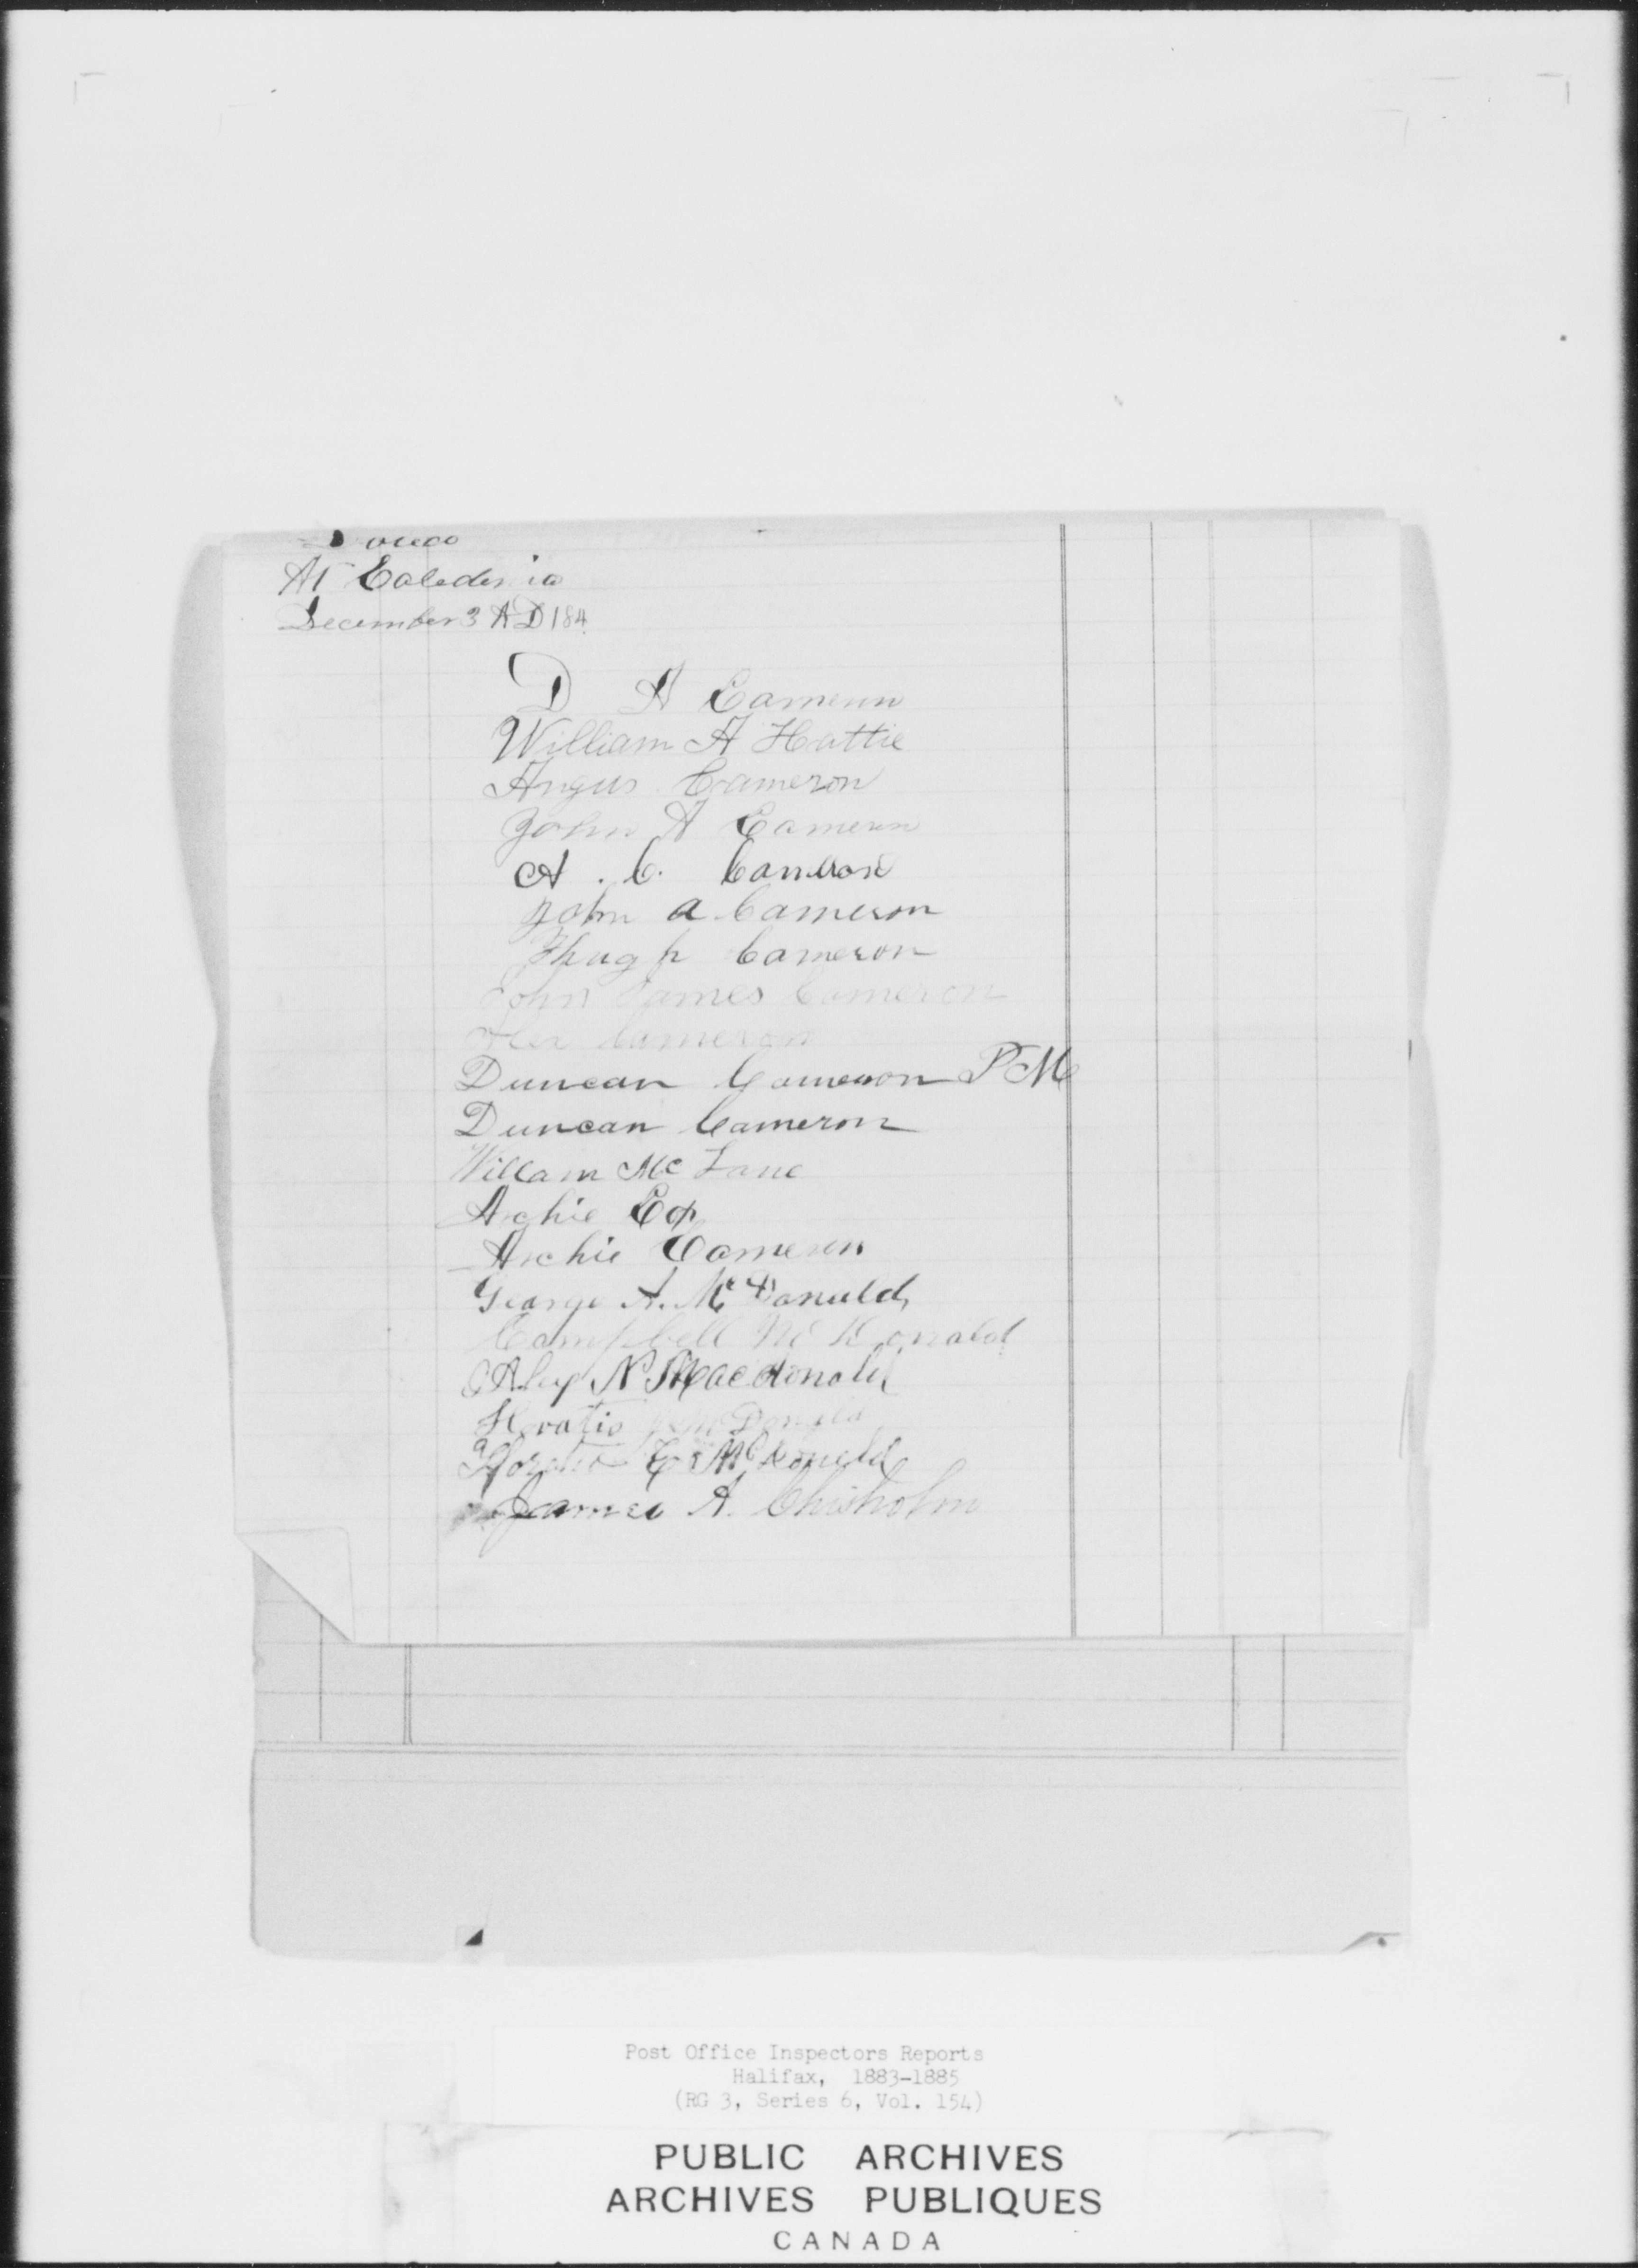 At Caledonia
December 3 AD 184
D A Cameron
William A Hattie
Angus Cameron
John A Cameron
A. C. Cameron
John A. Cameron
Hhugh Cameron
John James Cameron
Alex Cameron
Duncan Cameron P M
Duncan Cameron
Willam Mc Lane
Archie
Archie Cameron
George A. McDonald
Campbell McDonald
Alex N Macdonald
Horatio McDonald
McDonald
James A. Chisholm
Post Office Inspectors Reports
Halifax, 1883-1885
(RG 3, Series 6, Vol. 154)
PUBLIC ARCHIVES
ARCHIVES PUBLIQUES
CANADA